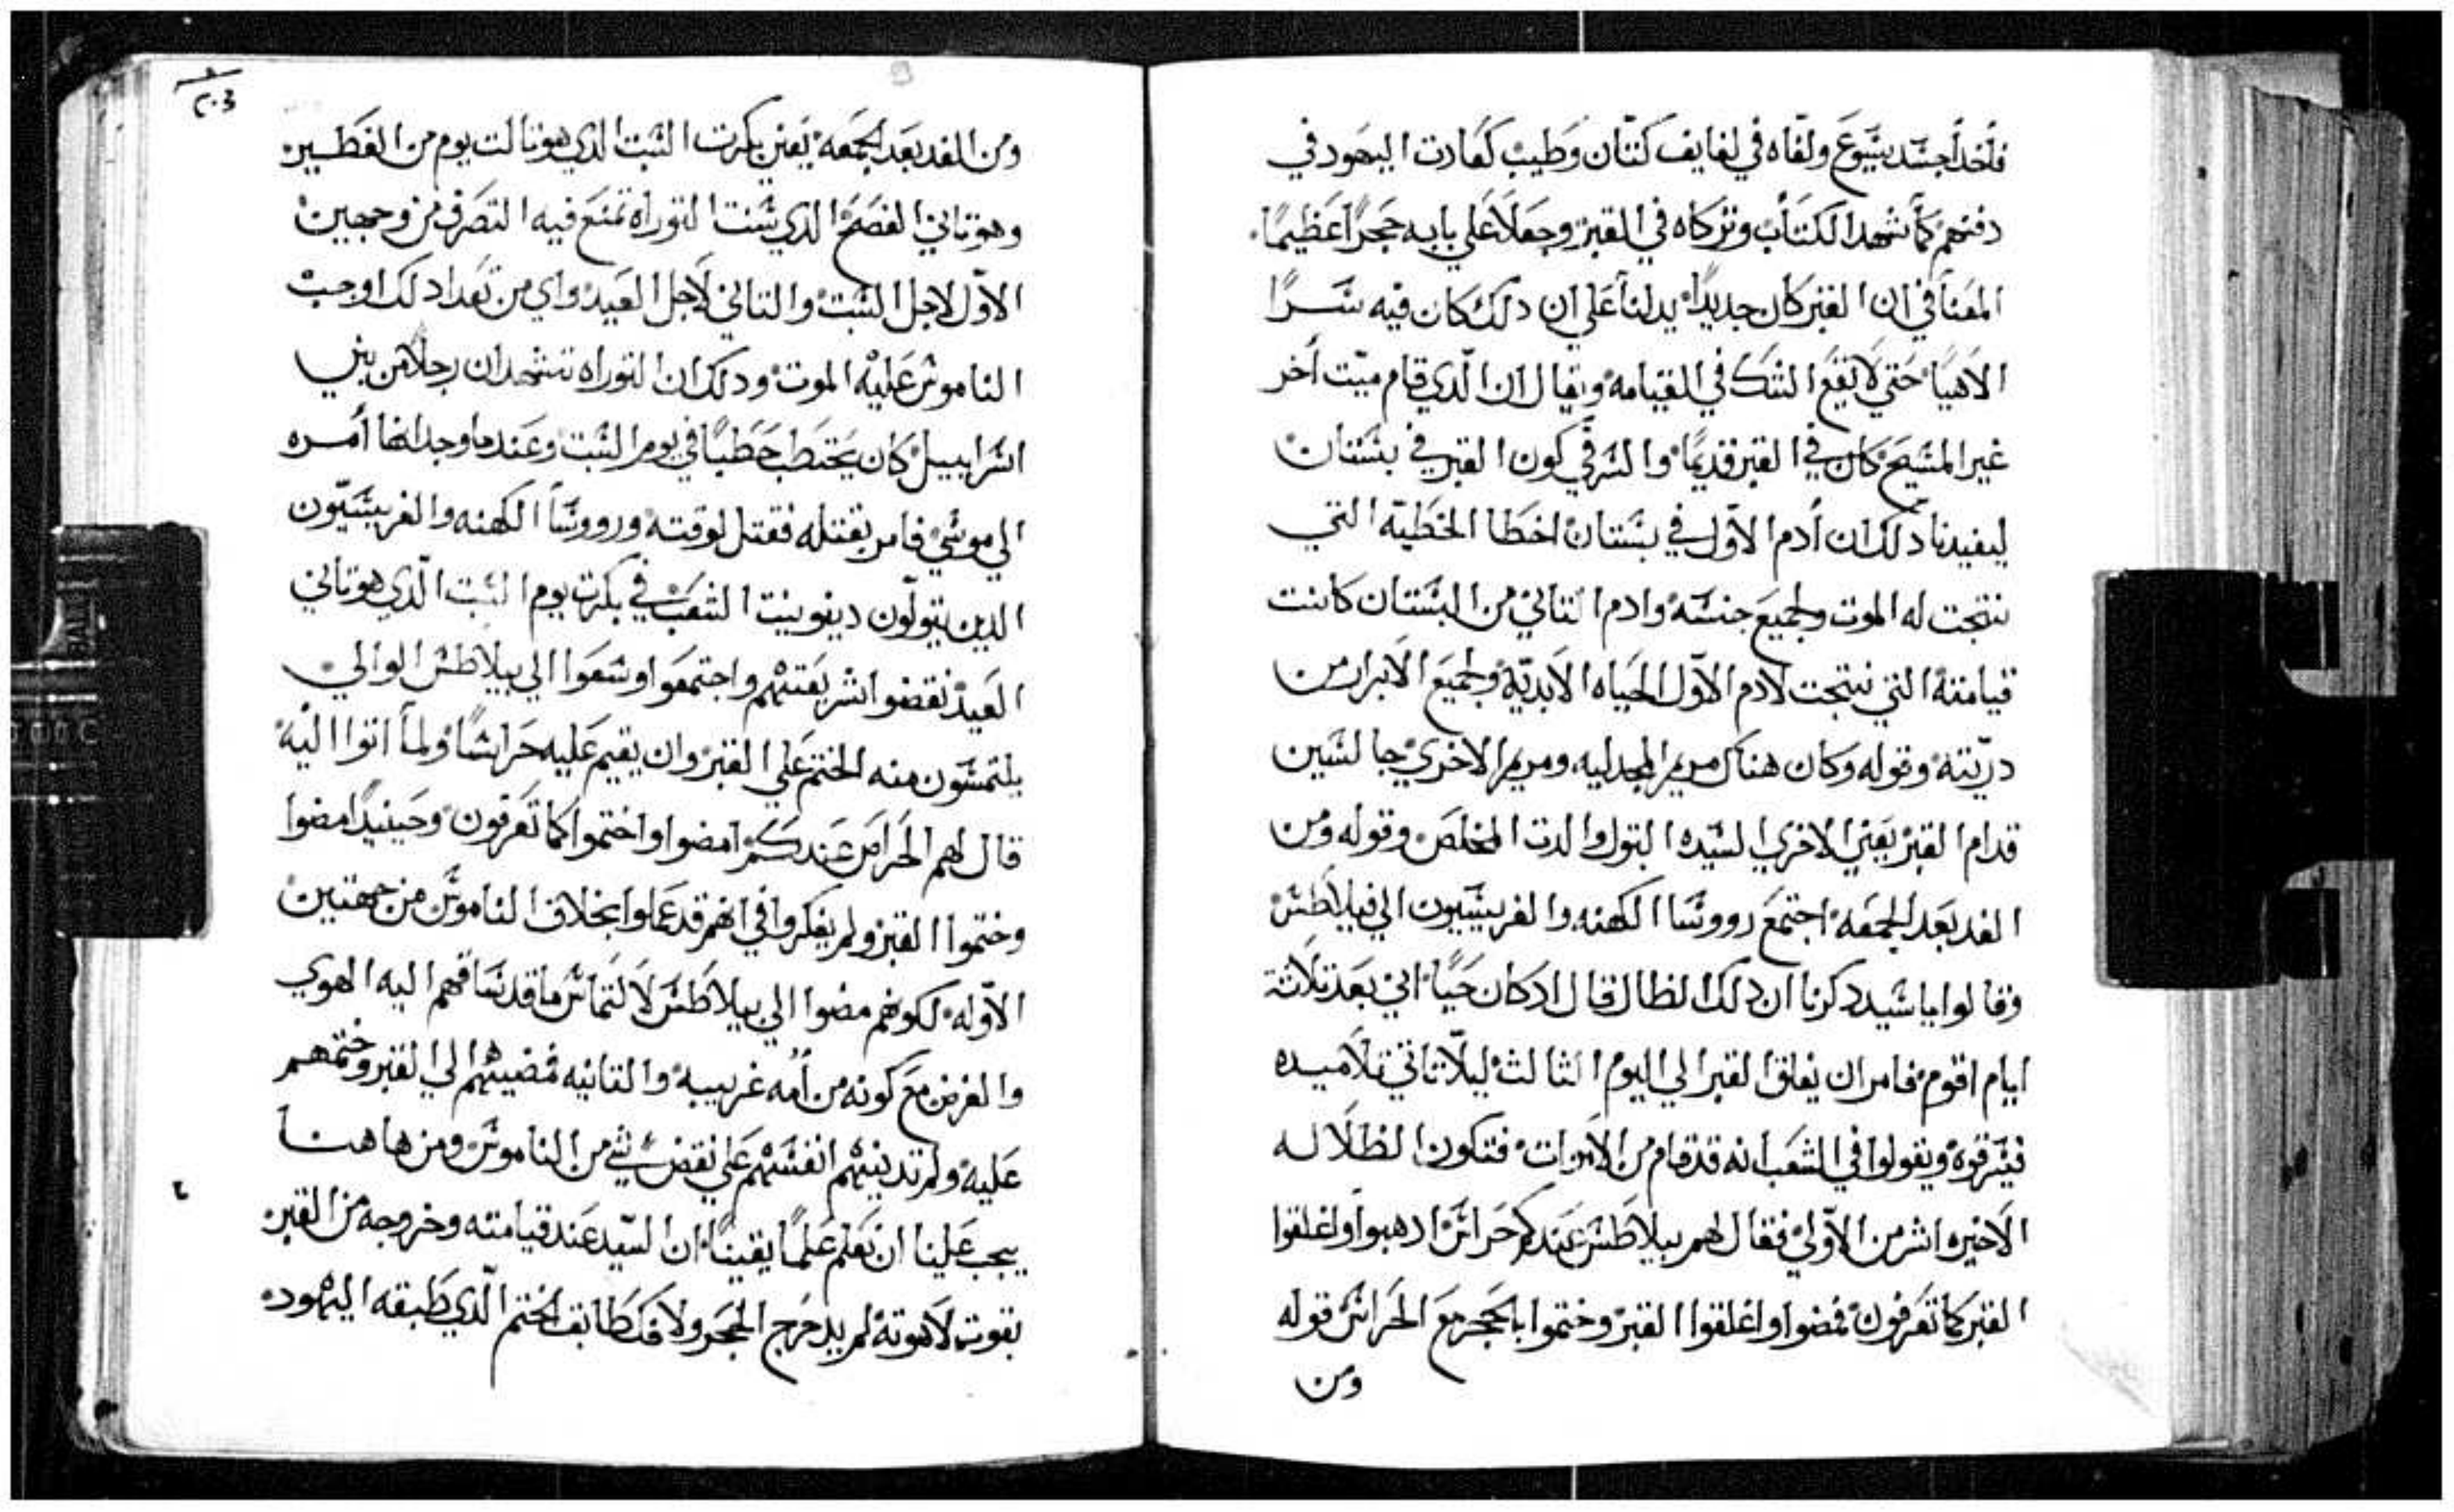 فأخدا جسد يسوع ولفاه في لفايف كتان وطيب كعادت اليهود في
دفنهم كما شهد الكتاب وتركاه في القبر وجعلا علي بابه حجرا عظيما
المعنا في ان القبر كان جديدا يدلنا علي ان دلك كان فيه سرا
الاهيا حتي لا يقع الشك في القيامه ويقال ان الدي قام ميت أخر
غير المسيح كان في القبر قديما والسر في كون القبر في بستان
ليفيدنا دلك ان أدم الاول في بستان اخطا الخطيه التي
نتجت له الموت ولجميع جنسه وادم التاني من البستان كانت
قيامته التي نتجت لادم الاول الحياه الابديه ولجميع الابرار من
دريته وقوله وكان هناك مريم المجدليه ومريم الاخري جالسين
قدام القبر يعني الاخري السيده البتول والدت المخلص وقوله ومن
الغد بعد الجمعه اجتمع رووسا الكهنه والفريسيون الي فيلاطس
وقالوا يا سيد دكرنا ان دلك الظال قال ادكان حيا اني بعد تلاتة
ايام اقوم فامر ان يغلق القبر الي اليوم الثالث ليلا تاتي تلاميده
فيسرقوه ويقولوا في الشعب انه قد قام من الاموات فتكون الظلاله
الاخيره اشر من الاولي فقال لهم بيلاطس عندكم حراس ادهبوا واغلقوا
القبر كما تعرفون فمضوا واغلقوا القبر وختموا بالحجر مع الحراس قوله
ومن
٢٠٣
ومن الغد بعد الجمعه يعني بكرت السبت الدي هو تالت يوم من الفطير
وهو تاني الفصح الدي سنت التوراه تمنع فيه التصرف من وجهين
الاول لاجل السبت والتاني لاجل العيد واي من تعدا دلك اوجب
الناموس عليه الموت ودلك ان التوراه تشهد ان رجلا من بني
اسراييل كان يحتطب حطبا في يوم السبت وعندما وجد انها أمره
الي موسي فامر بقتله فقتل لوقته ورووسا الكهنه والفريسيون
الدين يتولون دينونيت الشعب في بكرت يوم السبت الدي هو تاني
العيد نقضوا شريعتهم واجتمعوا وسعوا الي بيلاطس الوالي
يلتمسون منه الختم علي القبر وان يقيم عليه حراسا ولما اتوا اليه
قال لهم الحراس عندكم امضوا واختموا كما تعرفون وحينيدا مضوا
وختموا القبر ولم يفكروا في انهم قد عملوا بخلاف الناموس من جهتين
الاوله لكونهم مضوا الي بيلاطس لالتماس ما قد ساقهم اليه الهوي
والغرض مع كونه من أمه غريبه والتانيه فمضيهم الي القبر وختمهم
عليه ولم تدينهم انفسهم علي نقض شي من الناموس ومن هاهنا
يجب علينا ان نعلم علما يقينا ان السيد عند قيامته وخروجه من القبر
بقوت لاهوته لم يدحرج الحجر ولا فك طابق الختم الدي طبقه اليهود